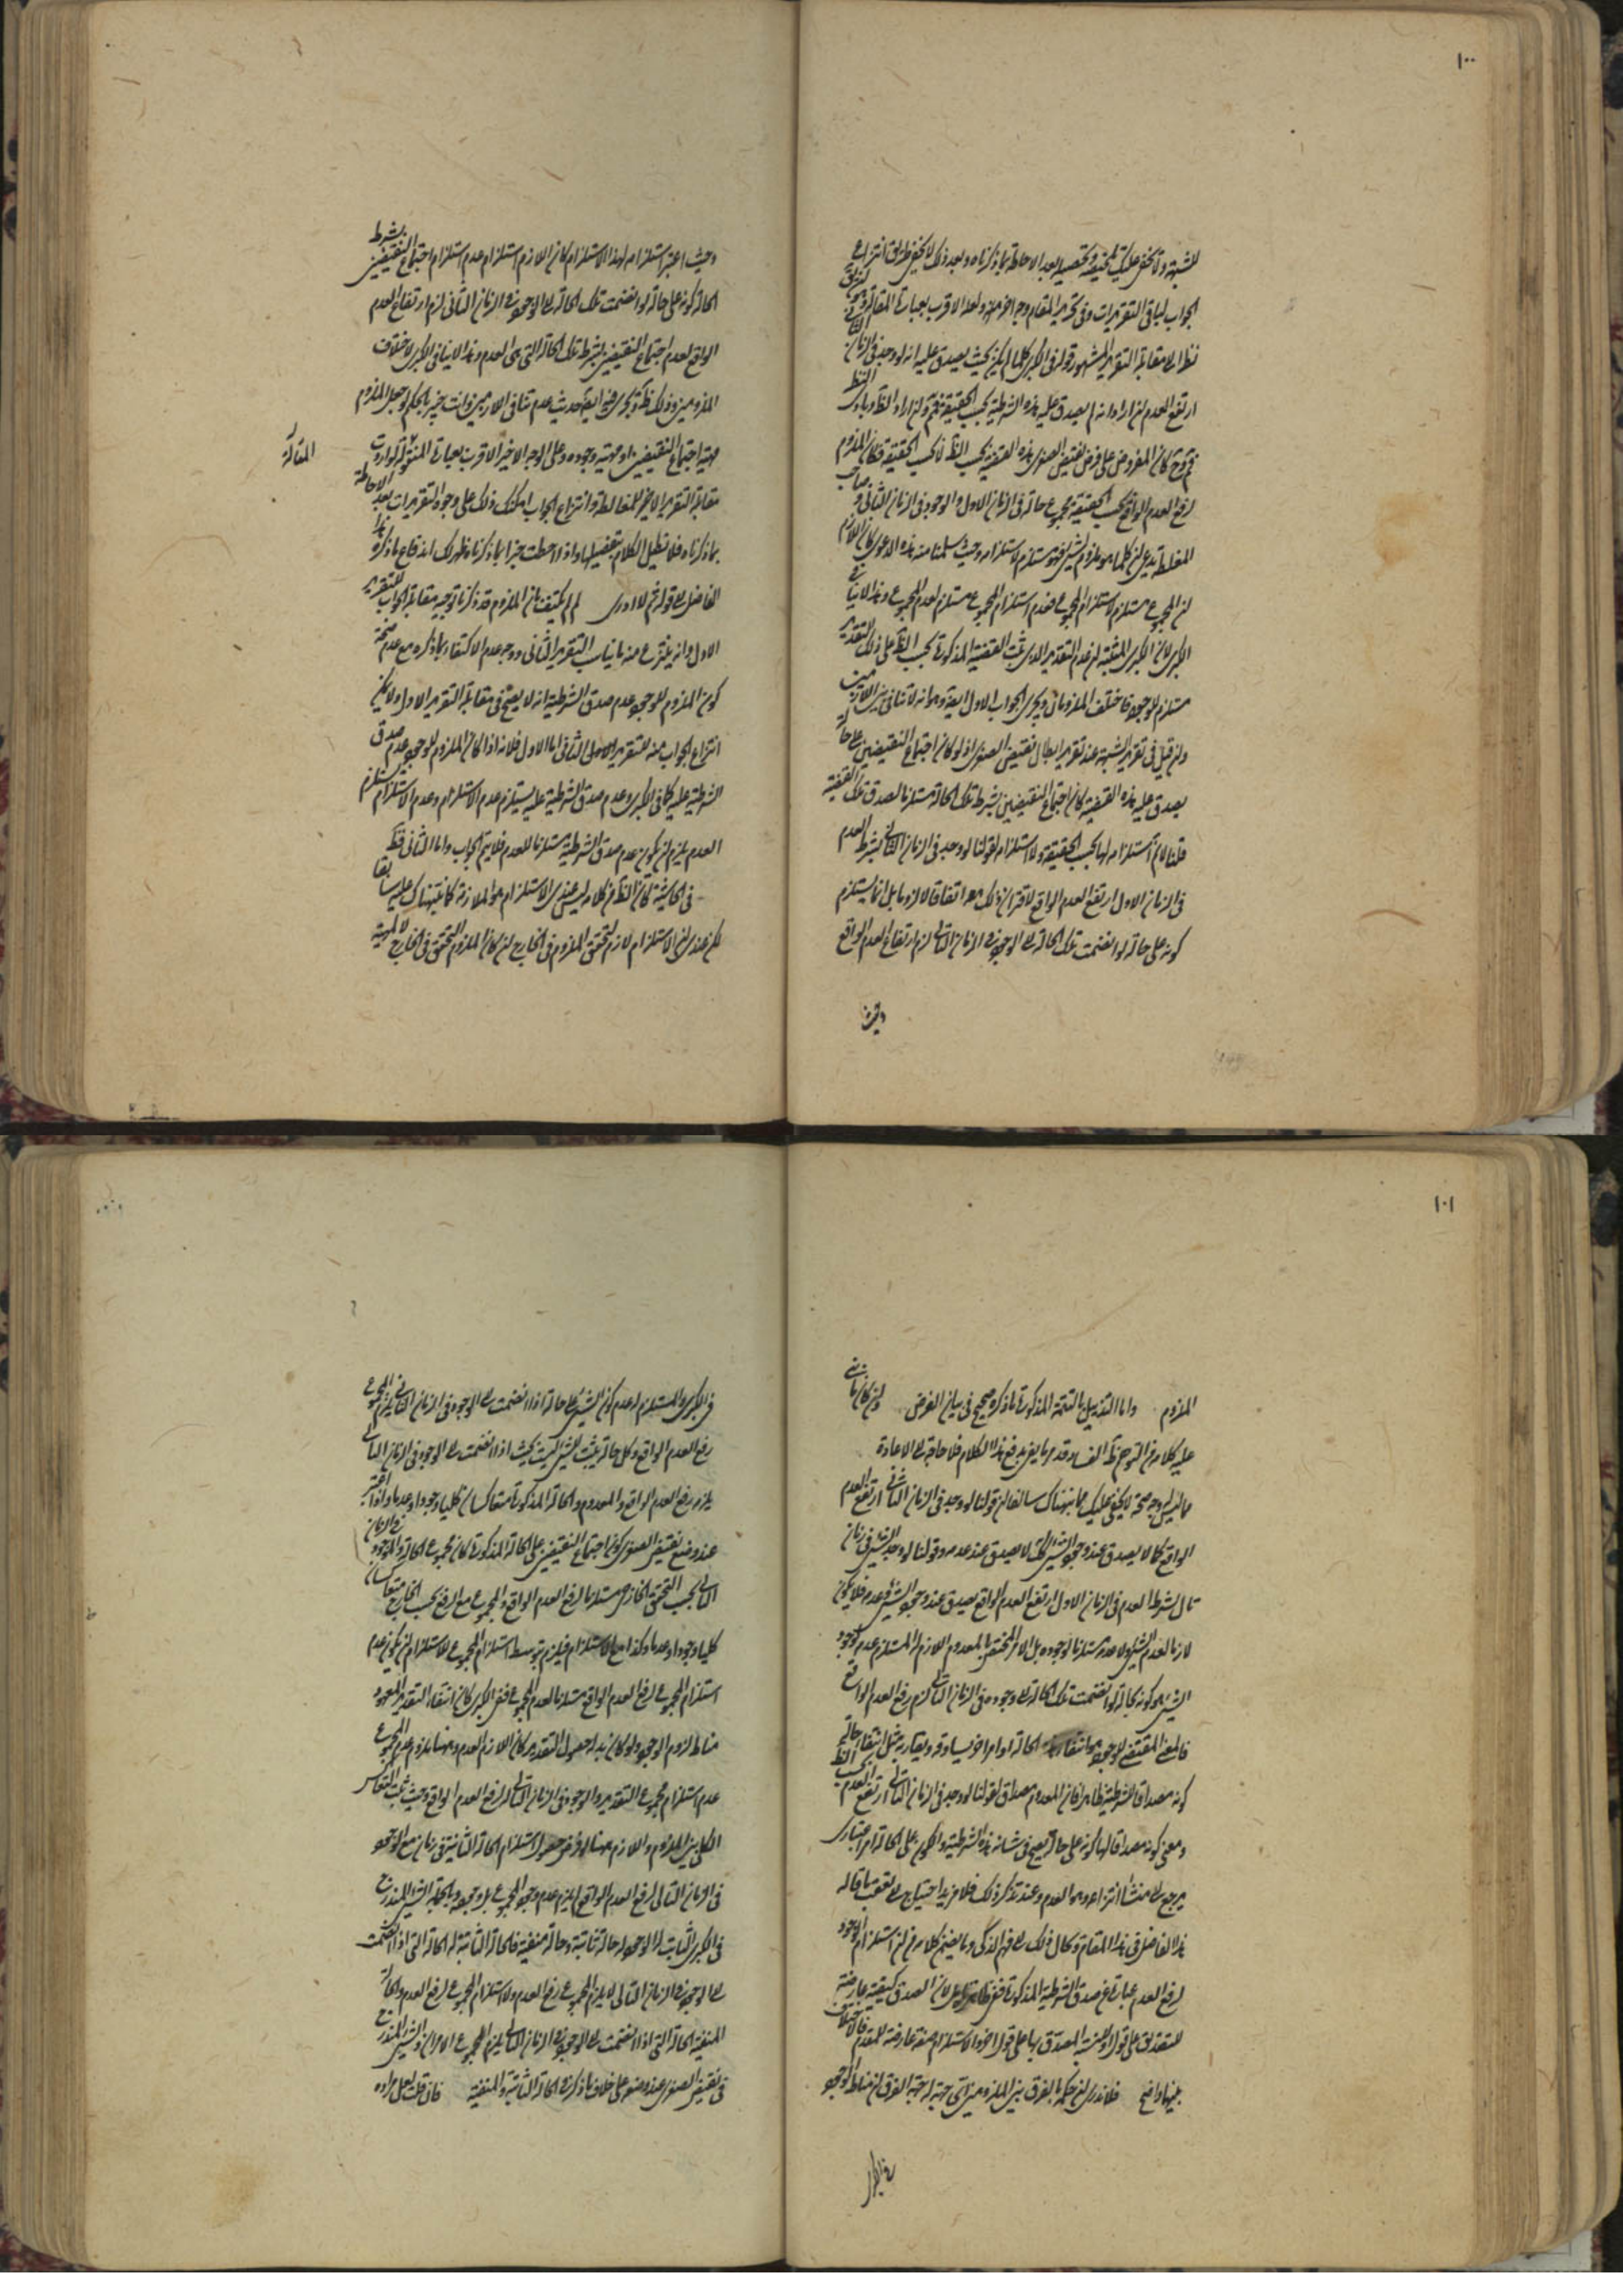 ١٠٠
للشبهة ولا يخفى عليك تحقيقه وتحصيله بعد الاحاطة بما ذكرناه وبعد ذلك لا يخفى طريق انتزاع
الجواب لباقى التقريرات وفى تحرير المقام وجه اخر ولعله الاقرب بعبارة المقالة
نظرا الى مقابلة التقرير المشهور قوله فى الكبرى كلما لم يكن بحيث يصدق عليه انه لو وجد فى الزمان الثانى
ارتفع العدم ان اراد انه لم يصدق عليه هذه الشرطية بحسب الحقيقة وان اراد
كان المفروض على فرض نقيض الصغرى هذه القضية بحسب الظ لا بحسب الحقيقة فكان الملزوم
لرفع العدم الواقع بحسب الحقيقة مجموع حاله فى الزمان الاول والوجود فى الزمان الثانى وصاحب
المغلطة يدعى ان كلما هو ملزوم لشئ فهو مستلزم لاستلزامه وحيث سلمنا منه هذه الدعوى كان اللازم
ان المجموع مستلزم لاستلزام المجموع فعدم استلزام المجموع مستلزم لعدم المجموع وهذا لا ينافى
الكبرى لان الكبرى المثبتة ان عدم التقدير الذى يثبت القضية المذكورة بحسب الظ على ذلك التقدير
مستلزم للوجود فاختلف الملزومان ويجرى الجواب الاول ايضا وهو انه لا تنافى بين اللازمين
وان قيل فى تقرير الشبهة عند تقرير ابطال نقيض الصغرى اذ لو كان اجتماع النقيضين على حالة
يصدق عليه هذه القضية كان اجتماع النقيضين بشرط تلك الحالة مستلزما لصدق تلك القضية
قلنا لا نم استلزامه لها بحسب الحقيقة ولا استلزامه لقولنا لو وجد فى الزمان الثانى بشرط العدم
فى الزمان الاول ارتفع العدم الواقع لاقتران ذلك معه اتفاقا لا لزوما بل انما يستلزم
كونه على حالة لو انضمت تلك الحالة الى الوجود فى الزمان الثانى لزم ارتفاع العدم الواقع
وحيث
وحيث اعتبر استلزامه لهذا الاستلزام كان اللازم استلزام عدم استلزام اجتماع النقيضين بشرط
الحالة كونه على حالة لو انضمت تلك الحالة الى الوجود فى الزمان الثانى لزم ارتفاع العدم
الواقع لعدم اجتماع النقيضين بشرط تلك الحالة التى هى العدم وهذا لا ينافى الكبرى لاختلاف
الملزومين وذلك ظ ويجرى فيه ايضا حديث عدم تنافى اللازمين وانت خبير بالحكم لو جعل الملزوم
مهية اجتماع النقيضين او مهيته ووجوده وعلى الوجه الاخير الاقرب بعبارة المنقولة لو اردت
المقالة
مقابلة التقرير الاخير للمغالطة وانتزاع الجواب امكنك ذلك على وجوه التقريرات بعد الاحاطة
بما ذكرناه فلا نطيل الكلام بتفصيلها واذ قد احطت خبرا بما ذكرناه ظهر لك اندفاع ما ذكره هذا
الفاضل الى قوله ثم لا ادرى لم لم يكتف بان الملزوم قد ذكرنا توجيه مقابلة الجواب للتقرير
الاول وانه ينتزع منه ما يناسب التقرير الثانى ووجه عدم الاكتفاء بما ذكره مع عدم صحة
كون الملزوم للوجود عدم صدق الشرطية انه لا يصح فى مقابلة التقرير الاول ولا يمكن
انتزاع الجواب منه للتقرير الثانى اما الاول فلانه اذا كان الملزوم للوجود عدم صدق
الشرطية عليه كما فى الكبرى وعدم صدق الشرطية عليه يستلزم عدم الاستلزام وعدم الاستلزام يستلزم
العدم يلزم ان يكون عدم صدق الشرطية مستلزما للعدم فلا يتم الجواب واما الثانى فظ
فى الحاشية كان الظ من كلامه ليس عينى الاستلزام هو الملازمة كما نبهناك عليه سابقا
بل عنده ان الاستلزام لازم لتحقق الملزوم فى الخارج ان كان الملزوم المتحقق فى الخارج لا المهية
١٠١
الملزوم واما التذييل بالتتمة المذكورة ما ذكره صحيح فى بيان الغرض وان كان ما بنى
عليه كلامه من التوجيه ظ الفساد قد مر ما يفيد دفع هذا الكلام فلا حاجة الى الاعادة
مما ليس له وجه صحة لا يخفى عليك مما نبهناك سالفا ان قولنا لو وجد فى الزمان الثانى ارتفع العدم
الواقع كما لا يصدق عند وجود الشئ كك لا يصدق عند عدمه وقولنا لو وجد الشئ فى زمان
تال بشرط العدم فى الزمان الاول ارتفع العدم الواقع يصدق عند وجود الشئ وعدمه فلا يكون
لازما لعدم الشئ ولا عدمه مستلزما لوجوده بل الامر المختص بالمعدوم اللازم له المستلزم عدمه لوجود
الشئ هو كونه بحالة لو انضمت تلك الحالة الى وجوده فى الزمان الثانى لزم رفع العدم الواقع
فالمعنى المقتضى للوجود هو انتفاء هذه الحالة او امر اخر يساوقه ويقاربه مثل انتفاء حالة
كونه مصداقا للشرطية ظاهرا فان المعدوم مصداق لقولنا لو وجد فى الزمان الثانى ارتفع العدم بحسب الظ
ومعنى كونه مصداقا لها كونه على حالة يصح فى شانه هذه الشرطية والكون على الحالة امر اعتبارى
يرجع الى منشأ انتزاعه وهو العدم وعند تذكر ذلك فلا مزيد احتياج الى تعقب ما قاله
هذا الفاضل فى هذا المقام وكل ذلك الى فهم الذكى وما يفهم كلامه من ان استلزام الوجود
لرفع العدم عبارة عن صدق الشرطية المذكورة ففى ظاهره لان الصدق كيفية عارضة
للتصديق على قول وللقضية المصدق بها على قول اخر والاستلزام صفة عارضة للمقدم فالاختلاف
بينهما واضح فلا ندرى ان حكمه بالفرق بين الملزومين اى جهة له جهة الفرق ان مناط الوجود
فى الكبرى
فى الكبرى والمستلزم له عدم كون الشئ على حالة اذا انضمت الى الوجود فى الزمان الثانى يلزم المجموع
رفع العدم الواقع وكل حالة يثبت للشئ ليست بحيث اذا انضمت الى الوجود فى الزمان الثانى
يلزم رفع العدم الواقع والمعدوم والحالة المذكورة متعاكسان كليا وجودا وعدما واذا اعتبر
عند وضع نقيض الصغرى كون اجتماع النقيضين على الحالة المذكورة كان مجموع الحالة والوجود فى الزمان
الثانى بحسب التحقق الخارجى مستلزما لرفع العدم الواقع والمجموع مع الرفع بحسب الخارج متعاكسان
كليا وجودا وعدما وكذا مع الاستلزام فيلزم بتوسط استلزام المجموع للاستلزام ان يكون عدم
استلزام المجموع لرفع العدم الواقع مستلزما لعدم المجموع ففى الكبرى كان انتفاء التقدير المعهود
مناط لزوم الوجود ولو كان بدله حصول التقدير كان اللازم العدم وههنا ملزوم عدم المجموع
عدم استلزام مجموع التقدير والوجود فى الزمان الثانى لرفع العدم الواقع وحيث ثبت التعاكس
الكلى بين الملزوم واللازم ههنا لو فرض حصول استلزام الحالة الثانية فى زمان مع الوجود
فى الزمان الثانى لرفع العدم الواقع لم يلزم عدم وجود المجموع بل وجوده وبالجملة الشئ المندرج
فى الكبرى الثابت له الوجود له حالة ثابتة وحالة منفية فالحالة الثابتة له الحالة التى اذا انضمت
الى الوجود فى الزمان الثانى لا يلزم المجموع رفع العدم ولا استلزام المجموع لرفع العدم والحالة
المنفية الحالة التى اذا انضمت الى الوجود فى الزمان الثانى يلزم المجموع الامران والشئ المندرج
فى نقيض الصغرى عند وضعه على خلاف ما ذكر فى الحالة الثابتة والمنفية فان قلت لعل مراده